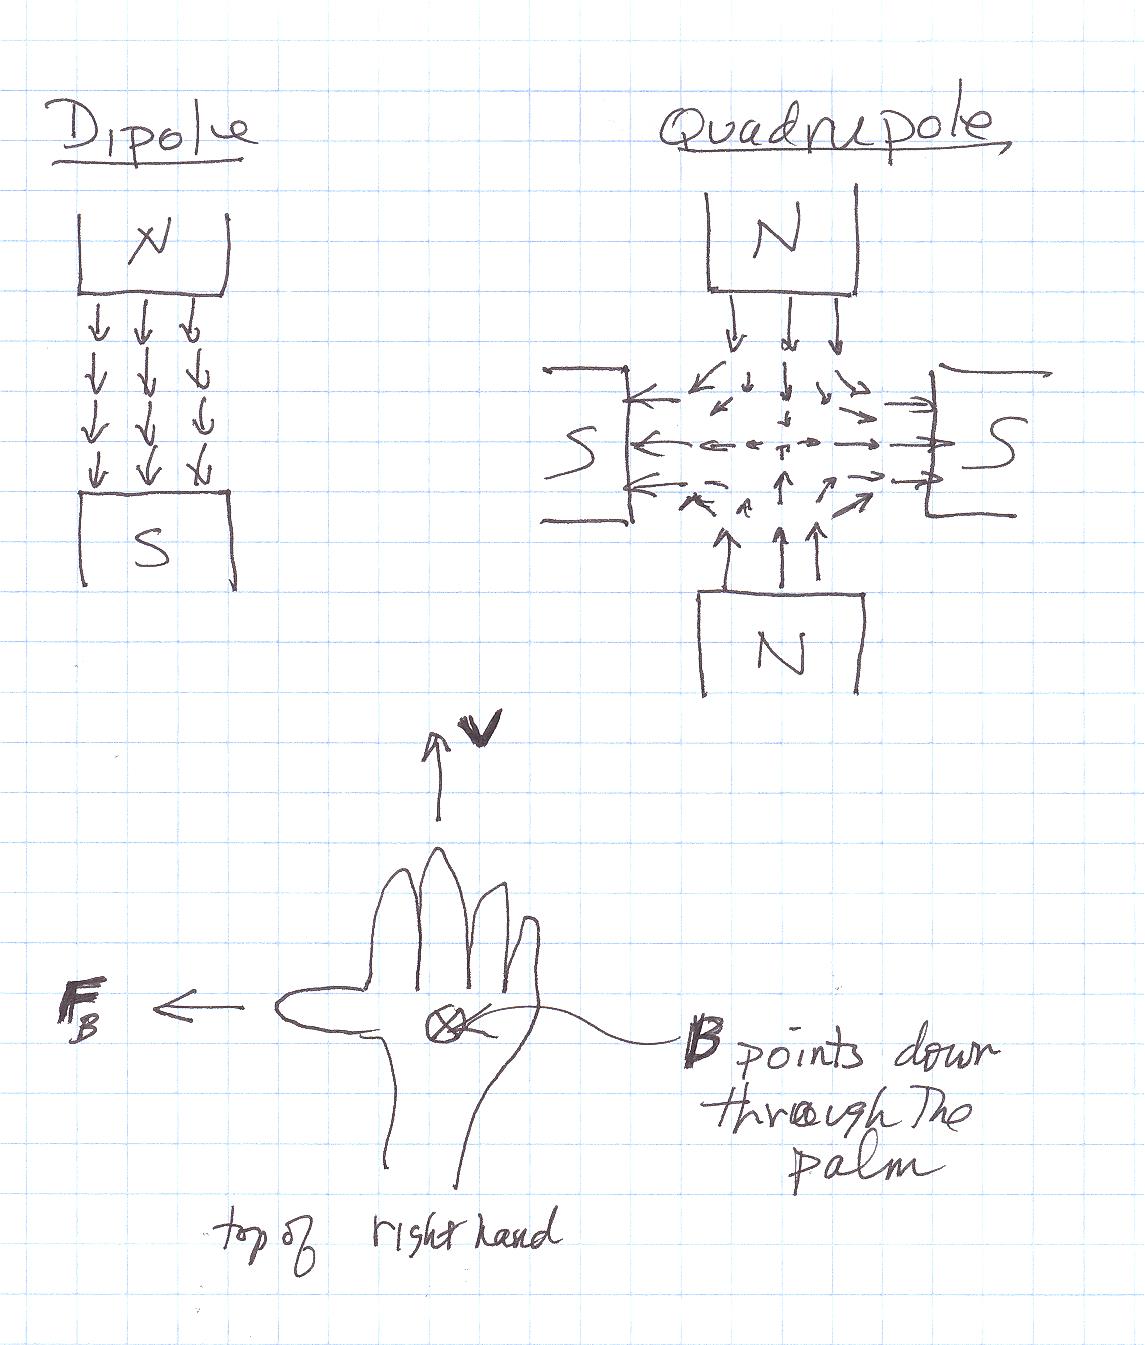 Dipole
Quadrupole
N
N
S
S
S
N
V
F_B
B points down
through The
palm
top of right hand